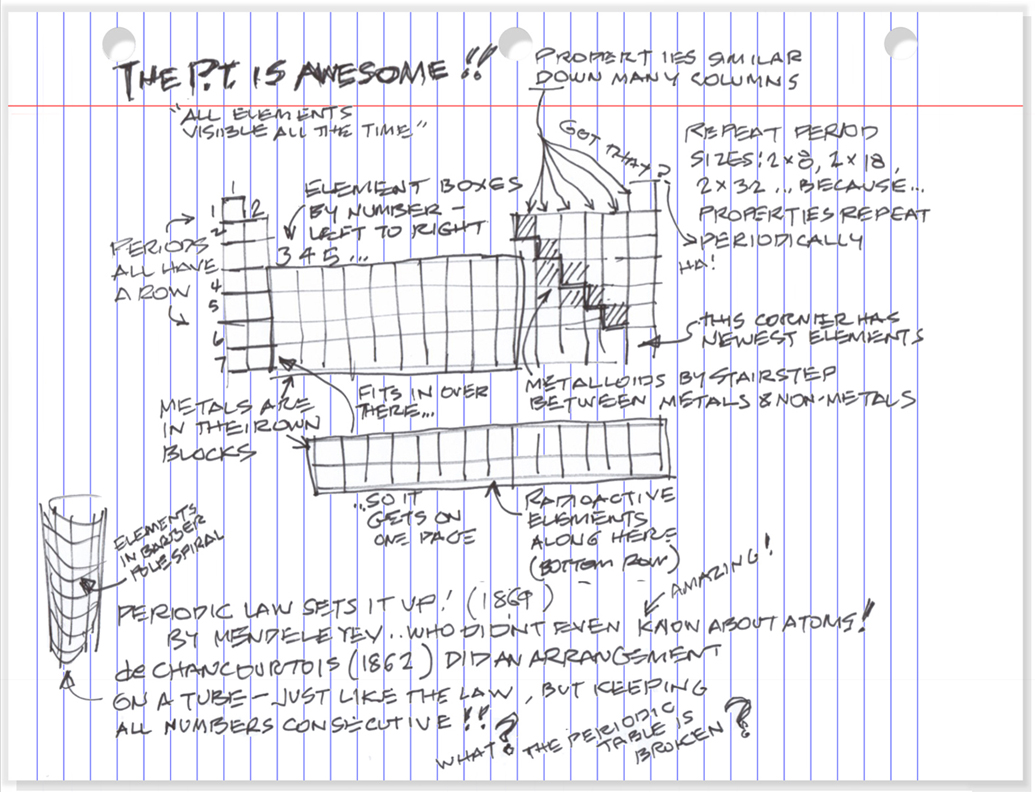 THE P.T. IS AWESOME!!
"ALL ELEMENTS
VISIBLE ALL THE TIME"
PROPERTIES SIMILAR
DOWN MANY COLUMNS
GOT THAT?
REPEAT PERIOD
SIZES: 2×8, 2×18,
2×32... BECAUSE...
PROPERTIES REPEAT
PERIODICALLY
HA!
ELEMENT BOXES
BY NUMBER –
LEFT TO RIGHT
3 4 5 ...
1
1 2
2
4
5
6
7
PERIODS
ALL HAVE
A ROW
THIS CORNER HAS
NEWEST ELEMENTS
METALLOIDS BY STAIRSTEP
BETWEEN METALS & NON-METALS
FITS IN OVER
THERE...
METALS ARE
IN THEIR OWN
BLOCKS
...SO IT
GETS ON
ONE PAGE
RADIOACTIVE
ELEMENTS
ALONG HERE
(BOTTOM ROW)
ELEMENTS
IN BARBER
POLE SPIRAL
AMAZING!
PERIODIC LAW SETS IT UP! (1869)
BY MENDELEYEV.. WHO DIDN'T EVEN KNOW ABOUT ATOMS!
de CHANCOURTOIS (1862) DID AN ARRANGEMENT
ON A TUBE – JUST LIKE THE LAW, BUT KEEPING
ALL NUMBERS CONSECUTIVE!!
WHAT? THE PERIODIC
TABLE IS
BROKEN?